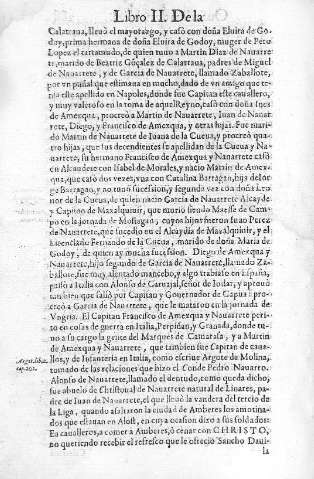 Libro II. De la
Calatraua, lleuò el mayorazgo, y casò con doña Eluira de Godoy,
prima hermana de doña Eluira de Godoy, muger de Pero
Lopez el cartamudo, de quien tuuo a Martin Diaz de Nauarrete,
marido de Beatriz Gõçalez de Calatraua, padres de Miguel
de Nauarrete, y de Garcia de Nauarrete, llamado Zaballote,
por vn puñal que estimaua en mucho, dado de vn amigo que tenia
este apellido en Napoles, donde fue Capitan este cauallero,
y muy valeroso en la toma de aquel Reyno, casò con doña Ines
de Amexqua, procreò a Martin de Nauarrete, Iuan de Nauarrete,
Diego, y Francisco de Amexqua, y otras hijas. Fue marido
Martin de Nauarrete de Iuana de la Cueua, y procreò quatro
hijas, que sus decendientes se apellidan de la Cueua y Nauarrete,
su hermano Francisco de Amexqua y Nauarrete casò
en Alcaudete con Isabel de Morales, y nacio Martin de Amexqua,
que casò dos vezes, vna con Catalina Barragan, hija de
Barragan, y no tuuo sucession, y segunda vez con doña
de la Cueua, de quien nacio Garcia de Nauarrete Alcayde
y Capitan de Mazalquiuir, que murio siendo Maesse de Campo
en la jornada de Mostagan, cuyos hijos fueron
de Nauarrete, que sucedio en el Alcaydia de Mazalquiuir, y el
Licenciado Fernando de la Cueua, marido de doña Maria de
Godoy, de quien ay mucha sucession. Diego de Amexqua y
Nauarrete, hijo segundo de Garcia de Nauarrete, llamado Zaballote,
fue muy alentado mancebo, y algo trauieso en España,
passò a Italia con Alonso de Caruajal, señor de Iodar, y aprouò
tambien que saliò por Capitan y Gouernador de Capua: procreò
a Garcia de Nauarrete, que le mataron en la jornada de
Vngria. El Capitan Francisco de Amexqua y Nauarrete
en cosas de guerra en Italia, Perpiñan, y Granada, donde tuuo
a su cargo la gente del Marques de Camarasa, y a Martin
de Amexqua y Nauarrete, que tambien fue Capitan de cauallos,
y de Infanteria en Italia, como escriue Argote de Molina,
tomado de las relaciones que hizo el Conde Pedro Nauarro.
Alonso de Nauarrete, llamado el dentudo, como queda dicho,
fue abuelo de Christoual de Nauarrete natural de Linares, padre
de Iuan de Nauarrete, el que lleuò la vandera del tercio de
la Liga, quando assaltaron la ciudad de Amberes los amotinados
que estauan en Alost, en cuya ocasion dixo a sus soldados:
Ea caualleros, a comer a Amberes, ò cenar con CHRISTO,
no queriendo recibir el refresco que le ofrecio Sancho Daui-
la
Argot. lib. 2.
cap.